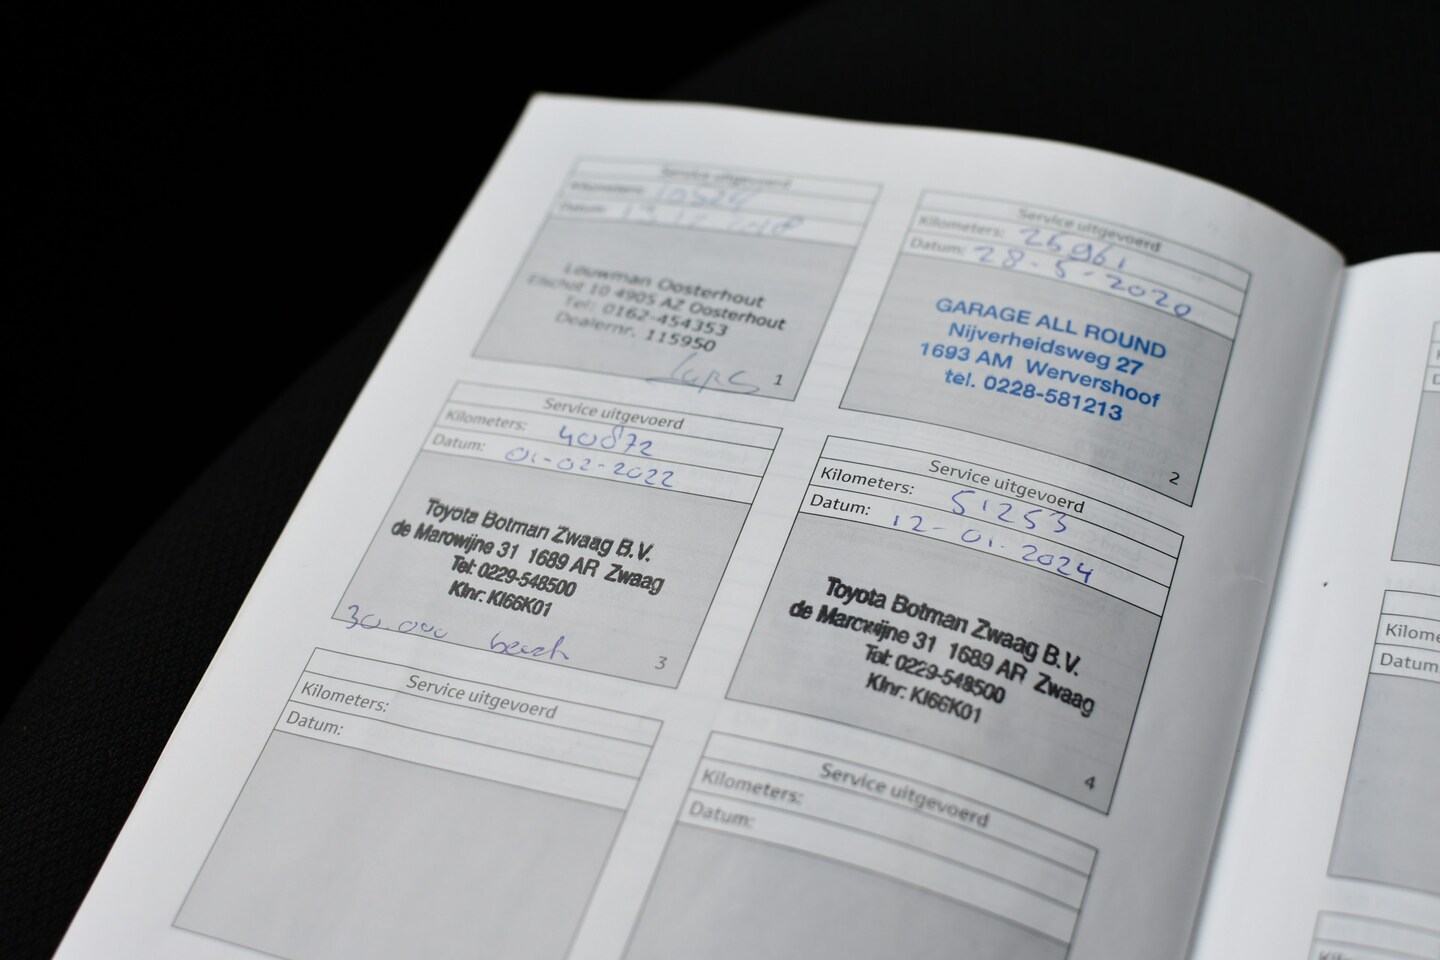 Service uitgevoerd
Kilometers:
Datum:
Louwman Oosterhout
Elschot 10 4905 AZ Oosterhout
Tel: 0162-454353
Dealernr. 115950
1
Service uitgevoerd
Kilometers: 25961
Datum: 28-5-2020
GARAGE ALL ROUND
Nijverheidsweg 27
1693 AM Wervershoof
tel. 0228-581213
2
Service uitgevoerd
Kilometers: 40872
Datum: 01-02-2022
Toyota Botman Zwaag B.V.
de Marowijne 31 1689 AR Zwaag
Tel: 0229-548500
Klnr: KI66K01
30.000
3
Service uitgevoerd
Kilometers: 51253
Datum: 12-01-2024
Toyota Botman Zwaag B.V.
de Marowijne 31 1689 AR Zwaag
Tel: 0229-548500
Klnr: KI66K01
4
Service uitgevoerd
Kilometers:
Datum:
Service uitgevoerd
Kilometers:
Datum:
Kilome
Datum